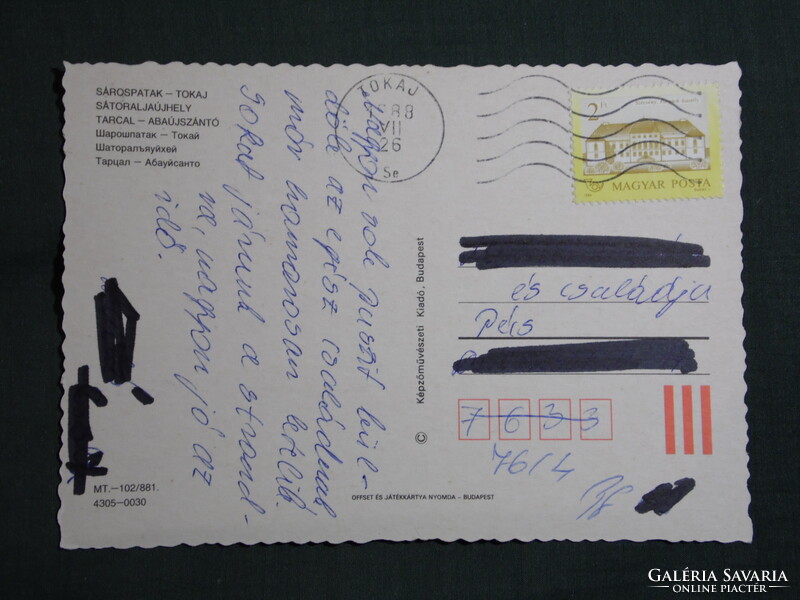 SÁROSPATAK – TOKAJ
SÁTORALJAÚJHELY
TARCAL – ABAÚJSZÁNTÓ
Шарошпатак – Токай
Шаторальяуйхей
Тарцал – Абауйсанто
TOKAJ
VII
26
Se
2 Ft
MAGYAR POSTA
Nagyon sok puszit kül-
az egész családnak
már hamarosan
Sokat járunk a strand-
ra, nagyon jó az
idő.
és családja
Pécs
7 6 3 3
76/4
© Képzőművészeti Kiadó, Budapest
MT.–102/881.
4305–0030
OFFSET ÉS JÁTÉKKÁRTYA NYOMDA – BUDAPEST
GALÉRIA SAVARIA
ONLINE PIACTÉR